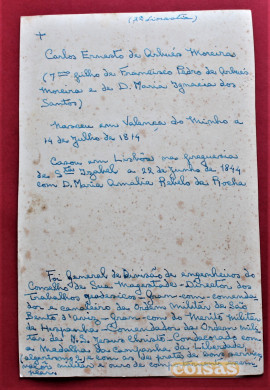 (1º Linhagem)
+
Carlos Ernesto de Arbués Moreira
(7º filho de Francisco Pedro de Arbués
Moreira e de D. Maria Ignacia dos
Santos)
Nasceu em Valença do Minho a
14 de Julho de 1814
Casou em Lisboa na freguesia
de Stª Izabel a 28 de Junho de 1844
com D. Maria Amalia Rebelo da Rocha
Foi General de Divisão de engenheiros do
Conselho de Sua Magestade - Director dos
Trabalhos geodesicos - Gram-com-comenda
dor e cavaleiro da Ordem Militar de São
Bento d'Aviz - Gram-com do Merito Militar
de Hespanha - Comendador da Ordem Mili
tar de N. S. Jesus Christo - Condecorado com
a Medalha da Campanha da Liberdade
algarismo 9 e com a de prata de bons serviços
valor militar e ouro de comportamento exem
plar
coisas